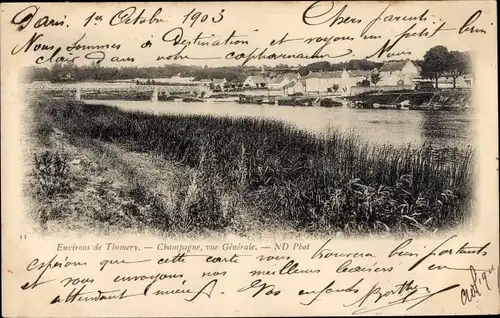 Paris, 1er Octobre 1903
Chers parents
Nous Sommes à Destination et voyons un petit brin
clair Dans
11
Environs de Thomery. — Champagne, vue Générale. — ND Phot
Espérons que cette carte vous trouvera bien portants
et nous envoyons nos meilleurs baisers en
attendant mieux. Vos enfants Berthe